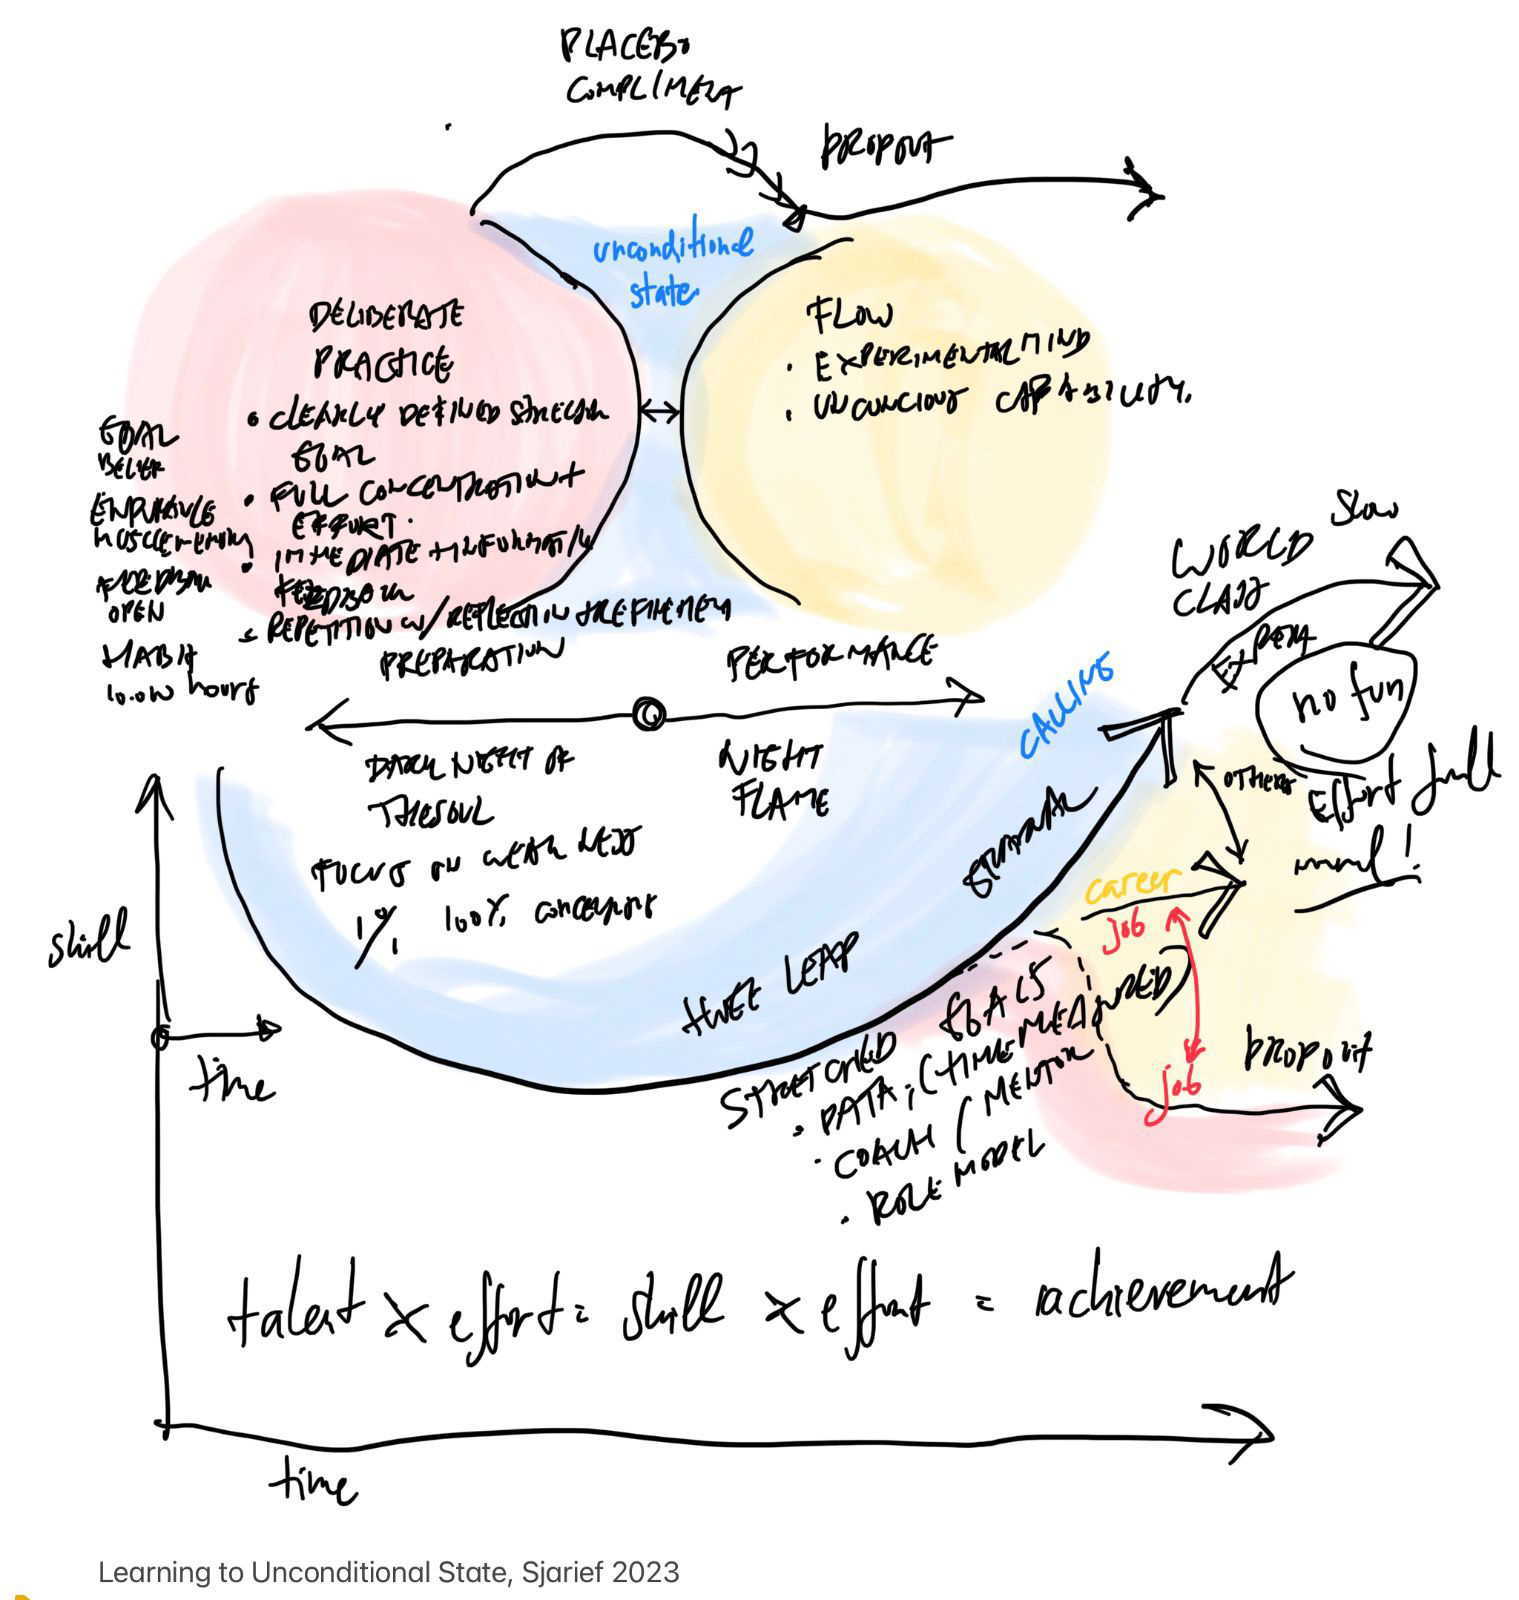 PLACEBO
COMPLIMENT
DROPOUT
unconditional
state
DELIBERATE
PRACTICE
• CLEARLY DEFINED STRETCH
GOAL
• FULL CONCENTRATION +
EFFORT.
• IMMEDIATE + INFORMATIV
FEEDBACK
• REPETITION W/ REFLECTION + REFINEMENT
GOAL
BELIEF
ENDURANCE
MUSCLE MEMORY
FEEDBACK
OPEN
HABIT
10.000 hours
FLOW
• EXPERIMENTAL MIND
• UNCONCIOUS CAPABILITY.
PREPARATION
PERFORMANCE
DARK NIGHT OF
THE SOUL
NIGHT
FLAME
FOCUS ON WEAKNESS
1% 100%
CALLING
WORLD
CLASS
Slow
EXPERT
no fun
Effort full
OTHERS
career
job
job
DROPOUT
skill
time
HUGE LEAP
STRETCHED GOALS
• DATA, (TIME MEASURED)
• COACH / MENTOR
• ROLE MODEL
talent x effort = skill x effort = achievement
time
Learning to Unconditional State, Sjarief 2023